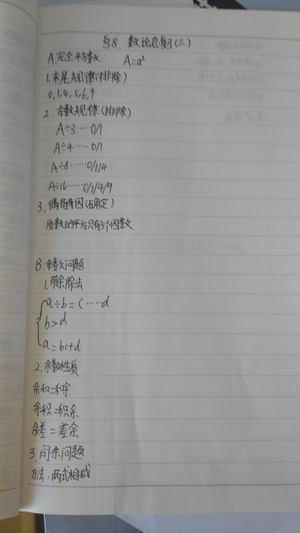 §8、数论总复习(二)
A.完全平方数 A=a²
1.末尾规律(排除)
0,1,4,5,6,9
2、余数规律(排除)
A÷3……0/1
A÷4……0/1
A÷8……0/1/4
A÷16……0/1/4/9
3、偶指奇因(确定)
质数的平方只有3个因数
B.余数问题
1.带余除法
a÷b=c……d
b>d
a=bc+d
2.余数性质
余和=和余
余积=积余
余差=差余
3.同余问题
方法:两式相减